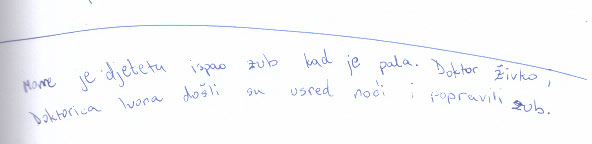 Mome je djetetu ispao zub kad je pala. Doktor Živko i
Doktorica Ivona došli su usred noći i popravili zub.